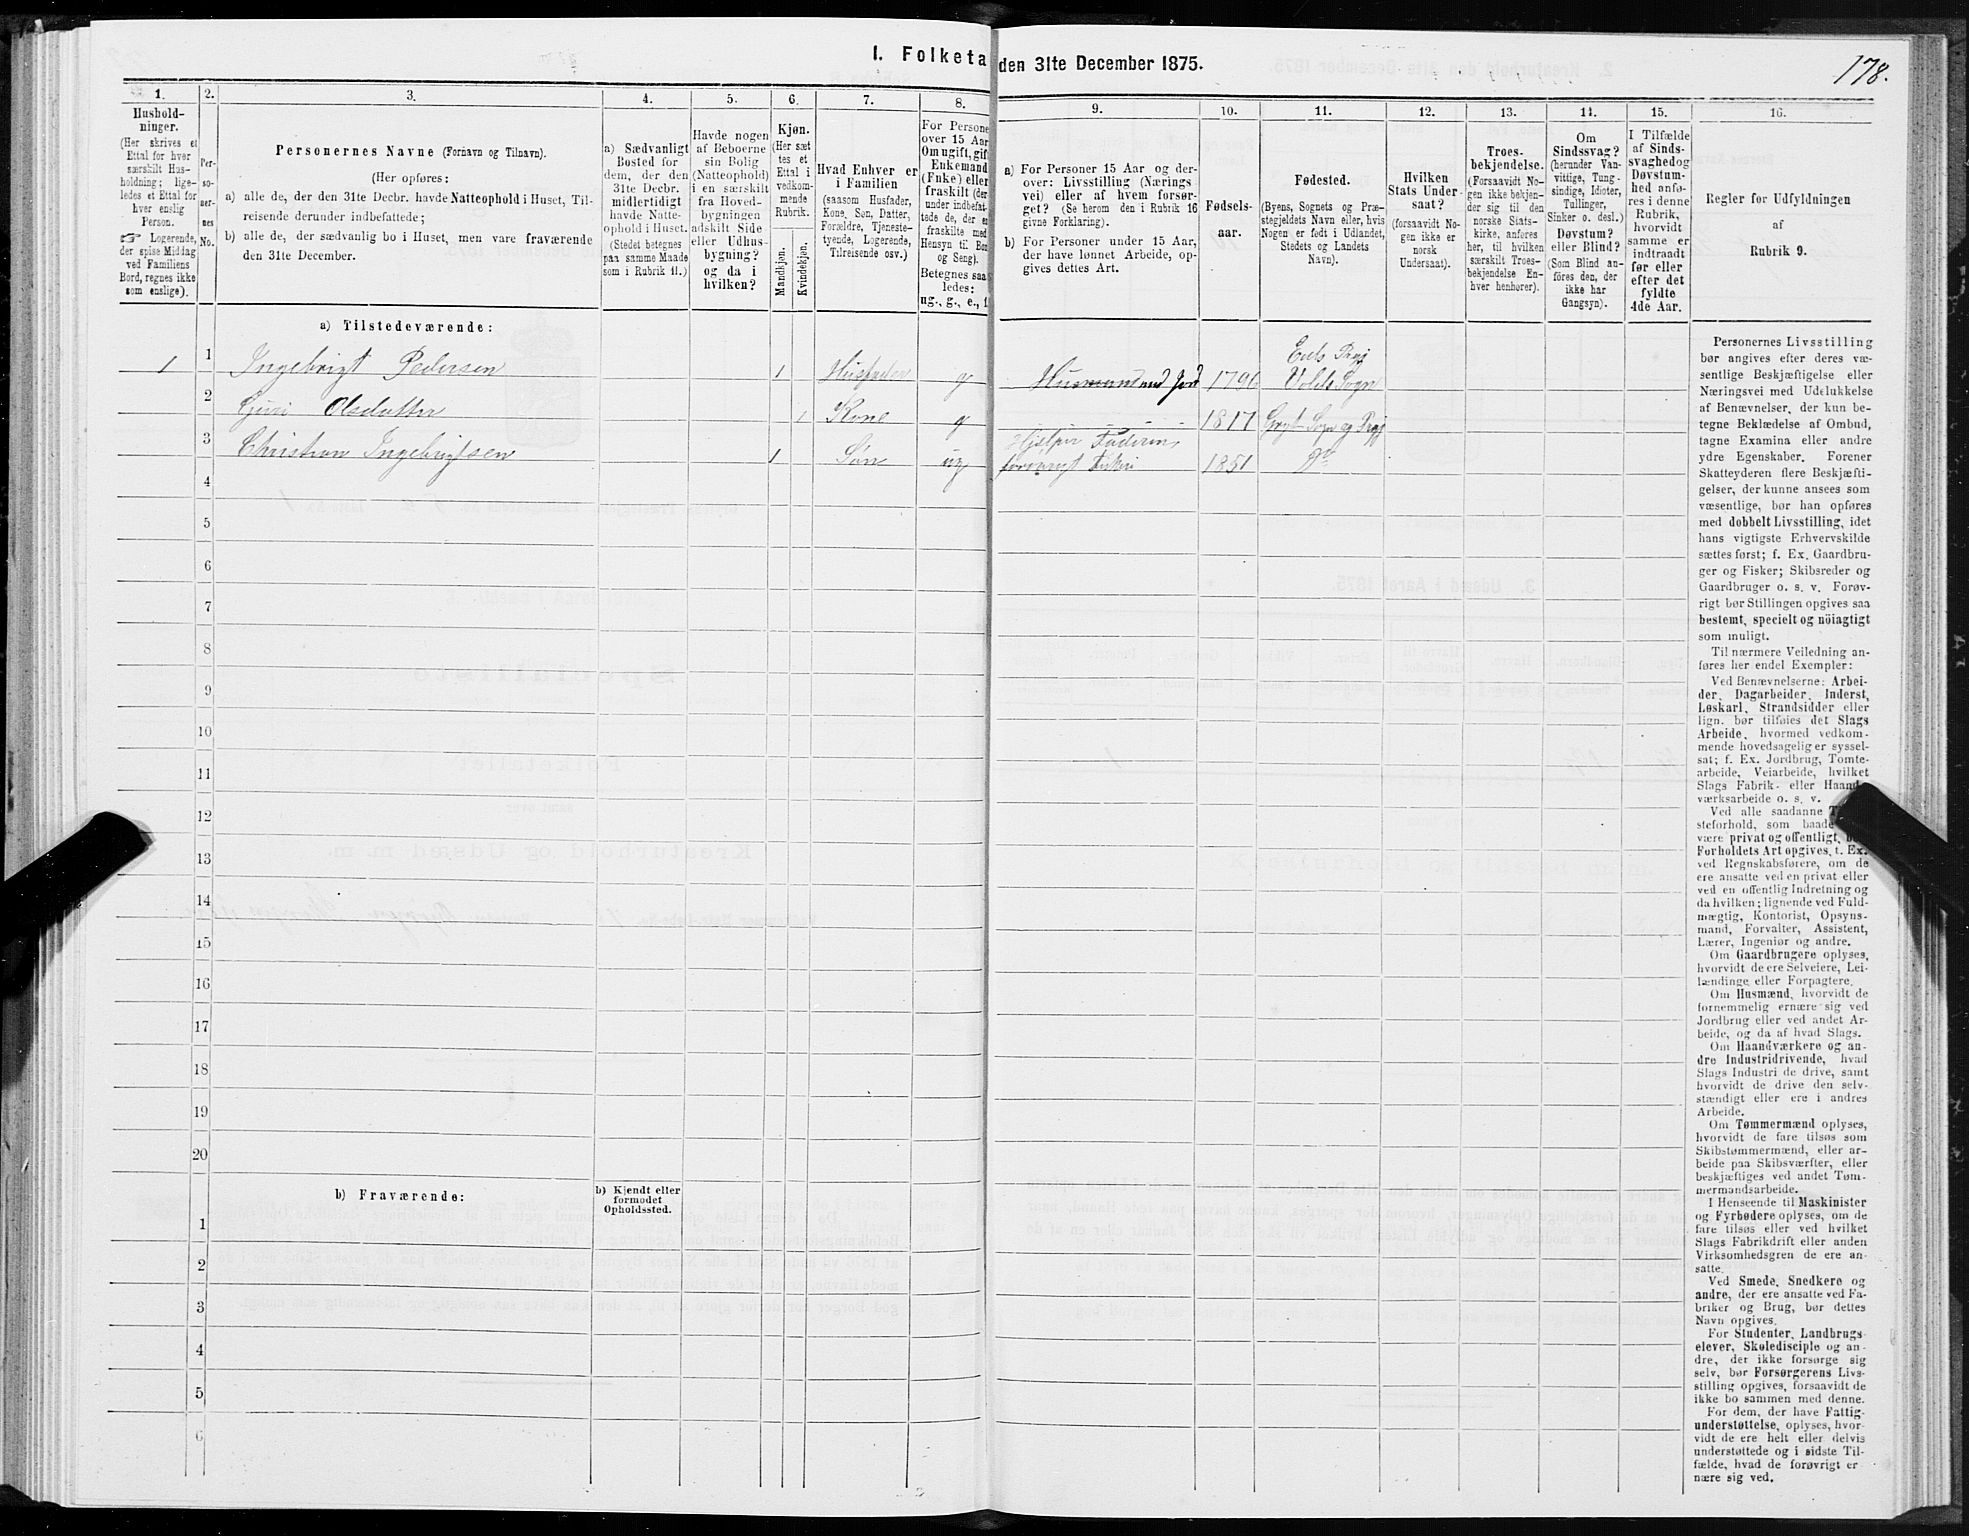 I. Folketa den 31te December 1875.
178.
1.
Hushold-
ninger.
(Her skrives et
Ettal for hver
særskilt Hus-
holdning; lige-
ledes et Ettal for
hver enslig
Person.
☞ Logerende,
der spise Middag
ved Familiens
Bord, regnes ikke
som enslige).
2.
Per-
so-
ner-
nes
No.
3.
Personernes Navne (Fornavn og Tilnavn).
(Her opføres:
a) alle de, der den 31te Decbr. havde Natteophold i Huset, Til-
reisende derunder indbefattede;
b) alle de, der sædvanlig bo i Huset, men vare fraværende
den 31te December.
4.
a) Sædvanligt
Bosted for
dem, der den
31te Decbr.
midlertidigt
havde Natte-
ophold i Huset.
(Stedet betegnes
paa samme Maade
som i Rubrik 11.)
5.
Havde nogen
af Beboerne
sin Bolig
(Natteophold)
i en særskilt
fra Hoved-
bygningen
adskilt Side
eller Udhus-
bygning?
og da i
hvilken?
6.
Kjøn.
(Her sæt
tes et
Ettal i
vedkom-
mende
Rubrik.
Mandkjøn.
Kvindekjøn.
7.
Hvad Enhver er
i Familien
(saasom Husfader,
Kone, Søn, Datter,
Forældre, Tjeneste-
tyende, Logerende,
Tilreisende osv.)
8.
For Persone
over 15 Aar
Om ugift, gif
Enkemand
(Enke) eller
fraskilt (der
under indbefat-
tede de, der er
fraskilte med
Hensyn til Bor
og Seng).
Betegnes saa
ledes:
ug., g., e., f
9.
a) For Personer 15 Aar og der-
over: Livsstilling (Nærings
vei) eller af hvem forsør-
get? (Se herom den i Rubrik 16
givne Forklaring).
b) For Personer under 15 Aar,
der have lønnet Arbeide, op-
gives dettes Art.
10.
Fødsels-
aar.
11.
Fødested.
(Byens, Sognets og Præ-
stegjeldets Navn eller, hvis
Nogen er født i Udlandet,
Stedets og Landets
Navn).
12.
Hvilken
Stats Under-
saat?
(forsaavidt No-
gen ikke er
norsk
Undersaat).
13.
Troes-
bekjendelse.
(Forsaavidt No-
gen ikke bekjen-
der sig til den
norske Stats-
kirke, anføres
her, til hvilken
særskilt Troes-
bekjendelse En-
hver henhører).
14.
Om
Sindssvag?
(herunder Van-
vittige, Tung-
sindige, Idioter,
Tullinger,
Sinker o. desl.)
Døvstum?
eller Blind?
(Som Blind an-
føres den, der
ikke har
Gangsyn).
15.
I Tilfælde
af Sinds-
svaghedog
Døvstum-
hed anfø-
res i denne
Rubrik,
hvorvidt
samme er
indtraadt
før eller
efter det
fyldte
4de Aar.
16.
Regler for Udfyldningen
af
Rubrik 9.
a) Tilstedeværende:
1 1 Ingebrigt Pedersen 1 Husfader g Husmand med Jord 1796 Eids Prgj Volds Sogn
2 Guri Olsdatter 1 Kone g 1817 Gryt Sogn og Prgj
3 Christian Ingebrigtsen 1 Søn ug Hjelper Faderen, forøvrigt Fisker 1851 Do
4
5
6
7
8
9
10
11
12
13
14
15
16
17
18
19
20
b) Fraværende:
b) Kjendt eller
formodet
Opholdssted.
1
2
3
4
5
6
Personernes Livsstilling
bør angives efter deres væ-
sentlige Beskjæftigelse eller
Næringsvei med Udelukkelse
af Benævnelser, der kun be-
tegne Beklædelse af Ombud,
tagne Examina eller andre
ydre Egenskaber. Forener
Skatteyderen flere Beskjæfti-
gelser, der kunne ansees som
væsentlige, bør han opføres
med dobbelt Livsstilling, idet
hans vigtigste Erhvervskilde
sættes først; f. Ex. Gaardbru-
ger og Fisker; Skibsreder og
Gaardbruger o. s. v. Forøv-
rigt bør Stillingen opgives saa
bestemt, specielt og nöiagtigt
som muligt.
Til nærmere Veiledning an-
føres her endel Exempler:
Ved Benævnelserne: Arbei-
der, Dagarbeider, Inderst,
Løskarl, Strandsidder eller
lign. bør tilføies det Slags
Arbeide, hvormed vedkom-
mende hovedsageliger syssel-
sat; f. Ex. Jordbrug, Tomte-
arbeide, Veiarbeide, hvilket
Slags Fabrik- eller Haand-
værksarbeide o. s. v.
Ved alle saadanne
steforhold, som baade
være privat og offentligt,
Forholdets Art opgives, t. Ex.
ved Regnskabsførere, om de
ere ansatte ved en privat eller
ved en offentlig Indretning og
da hvilken; lignende ved Fuld-
mægtig, Kontorist, Opsyns-
mand, Forvalter, Assistent,
Lærer, Ingeniør og andre.
Om Gaardbrugere oplyses,
hvorvidt de ere Selveiere, Lei-
lændinge eller Forpagtere.
Om Husmænd, hvorvidt de
fornemmelig ernære sig ved
Jordbrug eller ved andet Ar-
beide, og da af hvad Slags.
Om Haandværkere og an-
dre Industridrivende, hvad
Slags Industri de drive, samt
hvorvidt de drive den selv-
stændigt eller ere i andres
Arbeide.
Om Tømmermænd oplyses,
hvorvidt de fare tilsøs som
Skibstømmermænd, eller ar-
beide paa Skibsværfter, eller
beskjæftiges ved andet Tøm-
mermandsarbeide.
I Henseende til Maskinister
og Fyrbødere oplyses, om de
fare tilsøs eller ved hvilket
Slags Fabrikdrift eller anden
Virksomhedsgren de ere an-
satte.
Ved Smede, Snedkere og
andre, der ere ansatte ved Fa-
briker og Brug, bør dettes
Navn opgives.
For Studenter, Landbrugs-
elever, Skoledisciple og an-
dre, der ikke forsørge sig
selv, bør Forsørgerens Livs-
stilling opgives, forsaavidt de
ikke bo sammen med denne.
For dem, der have Fattig-
understøttelse, oplyses, hvor-
vidt de ere helt eller delvis
understøttede og i sidste Til-
fælde, hvad de forøvrigt er
nære sig ved.